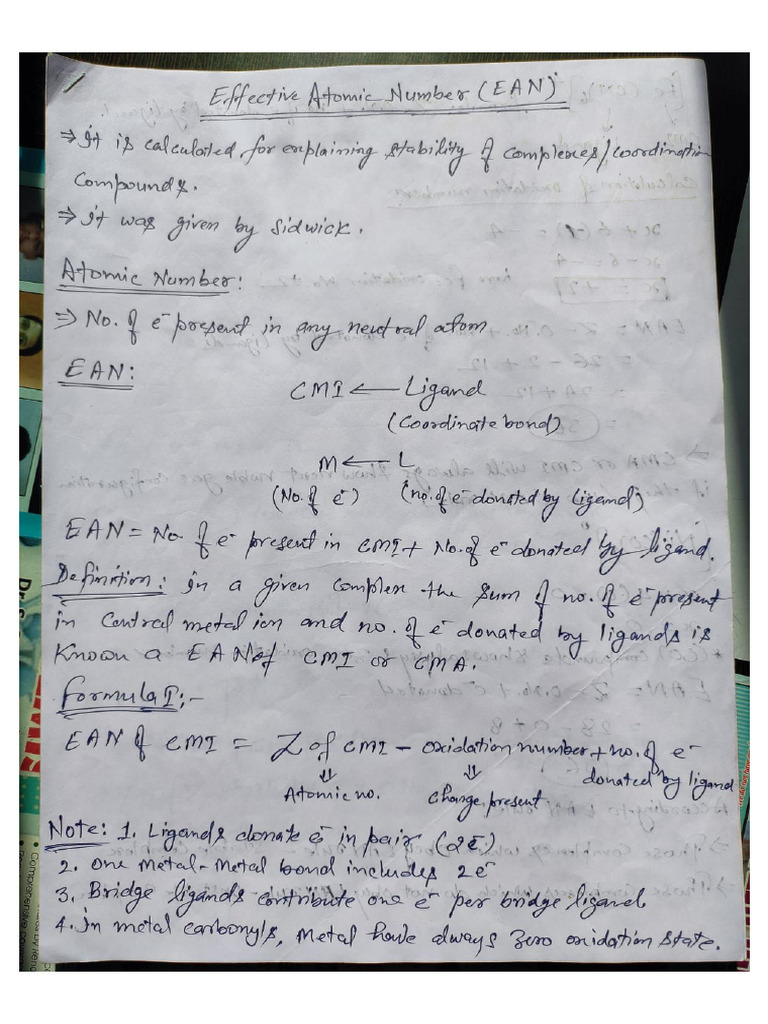 Effective Atomic Number (EAN)
⇒ It is calculated for explaining stability of complexes/coordination
compounds.
⇒ It was given by Sidwick.
Atomic Number:
⇒ No. of e⁻ present in any neutral atom
EAN:
CMI ← Ligand
(Coordinate bond)
M ← L
(No. of e⁻) (no. of e⁻ donated by Ligand)
EAN = No of e⁻ present in CMI + No. of e⁻ donated by ligand.
Definition: In a given complex the sum of no. of e⁻ present
in Central metal ion and no. of e⁻ donated by ligands is
Known a EAN of CMI or CMA.
Formula I:-
EAN of CMI = Z of CMI - oxidation number + no. of e⁻
donated by ligand
⇓ ⇓
Atomic no. Charge present
Note: 1. Ligands donate e⁻ in pair (2e⁻)
2. One Metal-Metal bond includes 2e⁻
3. Bridge ligands contribute one e⁻ per bridge ligand.
4. In metal carbonyls, Metal have always Zero oxidation state.